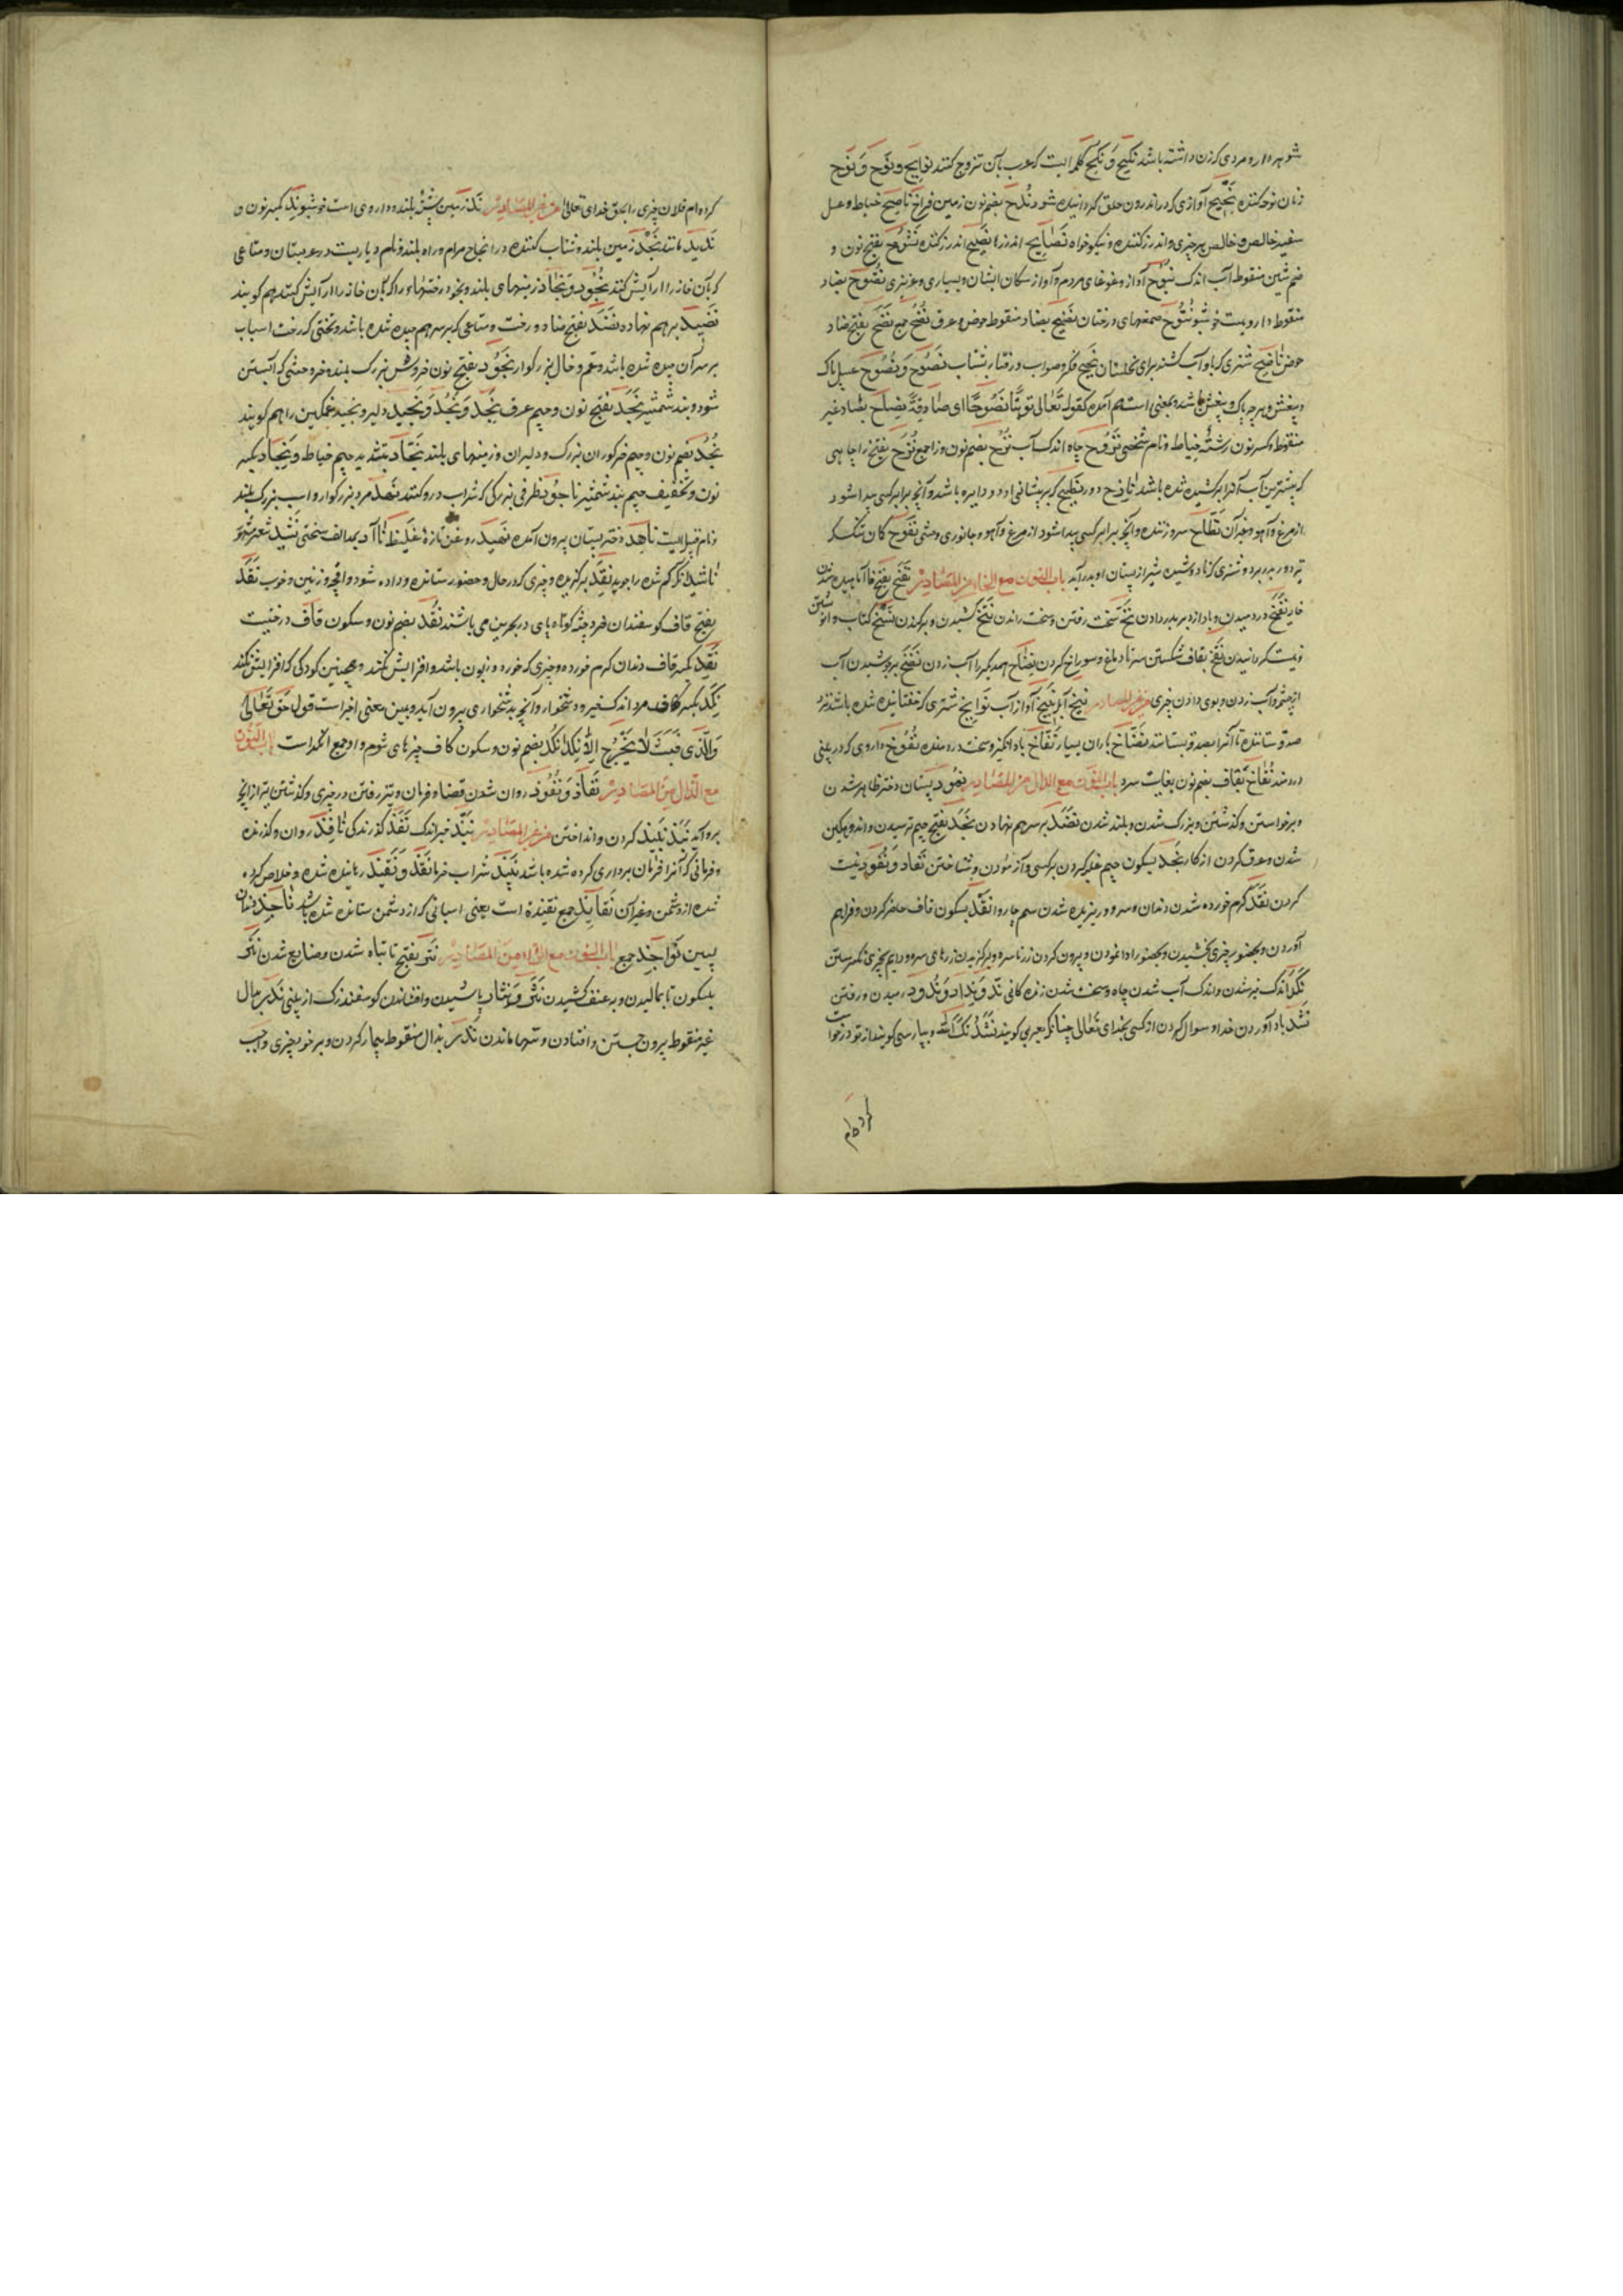 شوهردار و مردی که زن داشته باشد نکیح و نکح کلمه ایست که عرب بآن تزوج کنند نوایح و نوح و نوح
زنان نوحه کننده نحیح آوازی که در اندرون حلق گردانیده شود ندح بضم نون زمین فراخ ناصح خیاط و عسل
سفید خالص و خالص هر چیزی و اندرز کننده و نیکوخواه نصایح اندرزها نصیح اندرز کننده نشوح بفتح نون و
ضم شین منقوط آب اندک نبوح آواز و غوغای مردم و آواز سکان ایشان و بسیاری و عزیزی نضوح بضاد
منقوط داروییست خوشبو نتوح صمغهای درختان نضیح بضاد منقوط حوض و عرق نضح جمع نضح بفتح ضاد
حوض ناضح شتری که باو آب کشند برای نخلستان نجیح فکر و صواب و رفتار بشتاب نصوح و نصوح عسل پاک
و بیغش و هر چه پاک و بیغش باشد و بمعنی است هم آمده کقوله تعالی توبة نصوحا ای صادقة نصاح بصاد غیر
منقوط و کسر نون رشته خیاط و نام شخصی نزوح چاه اندک آب نزح بضم نون و زا جمع نزح بفتح زا چاهی
که بیشترین آب آنرا برکشیده شده باشد نازح دور نطیح که بر پیشانی او دو دایره باشد و آنچه برابر کسی پیدا شود
از مرغ و آهو و غیر آن نطاح سروزننده و آنچه برابر کسی پیدا شود از مرغ و آهو و جانوری وحشی نفوح کمان
تیر دور ببرد و شتری که نادوشیده شیر از پستان او بدر آید باب النون مع الخاء من المصادر نفخ بفتح فا آماسیده شدن
خایه نفخ دردمیدن و باد از دبر بدر دادن نخ سخت رفتن و سخت راندن نتخ کشیدن و برکندن نسخ کتاب وانوشتن
و نیست گردانیدن نقخ بقاف شکستن سر تا دماغ و سوراخ کردن نضاخ همدیگر را آب زدن نضخ بر جوشیدن آب
از چشمه و آب زدن و بوی دادن چیزی من غیر المصادر نبخ آبله نخیخ آواز آب نوایخ شتری که خفتانیده شده باشد نخه
صدقه ستاننده تا آنرا بصدقه بستانند نضاخ باران بسیار نفاخ باد انگیز و سخت در دمنده نفوخ داروی که در بینی
دردمند نقاخ بقاف بضم نون بغایت سرد باب النون مع الدال من المصادر نهود پستان دختر ظاهر شدن
و برخواستن و گذشتن و بزرگ شدن و بلند شدن نضد بر سر هم نهادن نجد بفتح جیم ترسیدن و اندوهگین
شدن و عرق کردن از کار نجد بسکون جیم غلبه کردن بر کسی و آزمودن و شناختن نفاد و نفود نیست
کردن نقد کرم خورده شدن دندان و سرو و ریزیده شدن سم چاروا نقد بسکون قاف حاضر کردن و فراهم
آوردن و بحضور چیزی بخشیدن و بحضور ادا نمودن و بیرون کردن زر ناسره و برگزیدن زرهای سره و درایم بچیزی نگرستن
نکد اندک خیر شدن و اندک آب شدن چاه و سخت شدن زنده کانی ند و نداد و ندود رمیدن و رفتن
نشد یاد آوردن خدا و سوال کردن از کسی بخدای تعالی چنانکه بعربی گویند نشدتک الله و بپارسی گویند از تو درخواست
کرده ام
کرده ام فلان چیزی را بحق خدای تعالی من غیر المصادر ند زمین پشته بلند و داروی است خوشبو ند بکسر نون و
ندید مانند نجد زمین بلند و شتاب کننده در انجاح مرام و راه بلند و نام دیاریست در عربستان و متاعی
که بآن خانه را آرایش کنند نجود و نجاد زمینهای بلند و نجود رختها را که بآن خانه را آرایش کنند هم گویند
نضید بر هم نهاده نضد بفتح ضاد و رخت و متاعی که بر سر هم چیده شده باشد و تختی که رخت و اسباب
بر سر آن چیده شده باشد و عم و خال بزرگوار نجود بفتح نون خروش بزرگ بلند و خر وحشی که آبستن
شود و بند شمشیر نجد بفتح نون و جیم عرق نجد و نجد و نجید دلیر و نجید غمگین را هم گویند
نجد بضم نون و جیم خرکوران بزرگ و دلیران و زمینهای بلند نجاد بتشدید جیم خیاط و نجاد بکسر
نون و تخفیف جیم بند شمشیر ناجود ظرفی بزرگی که شراب در او کنند نهد مرد بزرگوار و اسب بزرگ بلند
و نام قبیله ایست ناهد دختر پستان بیرون آمده نهید روغن تازه غلیظ ناآد بمد الف سختی نشید شعر
ناشد آنکه گم شده را جوید نقد برگزیده و چیزی که در حال و حضور ستانده و داده شود و اقچه وزنین و خوب نقد
بفتح قاف گوسفندان خرد جثه کوتاه پای در بحرین می باشند نقد بضم نون و سکون قاف درختیست
نقد بکسر قاف دندان کرم خورده و چیزی که خورد و زبون باشد و افزایش نکند و همچنین کودکی که افزایش نکند
نکد بکسر کاف مرد اندک خیر و دشخوار و آنچه بدشخواری بیرون آید و بهمین معنی اخیر است قول حق تعالی
والذی خبث لا یخرج الا نکدا نکد بضم نون و سکون کاف چیزهای شوم و او جمع انکد است باب النون
مع الذال من المصادر نفاذ و نفوذ روان شدن قضا و فرمان و تیر رفتن در چیزی و گذشتن تیر از آنچه
برو آید نبذ نبیذ کردن و انداختن من غیر المصادر نبذ چیز اندک نفذ گذرندگی نافذ روان و گذرنده
و فرمانی که آنرا فرمان برداری کرده شده باشد نبیذ شراب خرما نقذ و نقیذ رهانیده شده و خلاص کرده
شده از دشمن و غیر آن نقایذ جمع نقیذة است یعنی اسبانی که از دشمن ستانده شده باشد ناجذ دندان
پسین نواجذ جمع باب النون مع الراء من المصادر نتر بفتح تا تباه شدن و ضایع شدن نتر
بسکون تا بمالیدن و بعنف کشیدن نثر و نثار پاشیدن و افشاندن گوسفند زکی از بینی ندر بدال
غیر منقوط بیرون جستن و افتادن و تنها ماندن نذر بذال منقوط بیمار کردن و بر خود چیزی واجب